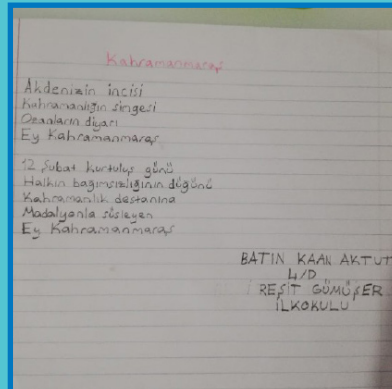 Kahramanmaraş
Akdenizin incisi
Kahramanlığın simgesi
Ozanların diyarı
Ey Kahramanmaraş
12 Şubat kurtuluş günü
Halkın bağımsızlığının düğünü
Kahramanlık destanına
Madalyanla süsleyen
Ey Kahramanmaraş
BATIN KAAN AKTUT
4/D
REŞİT GÜMÜŞER
İLKOKULU